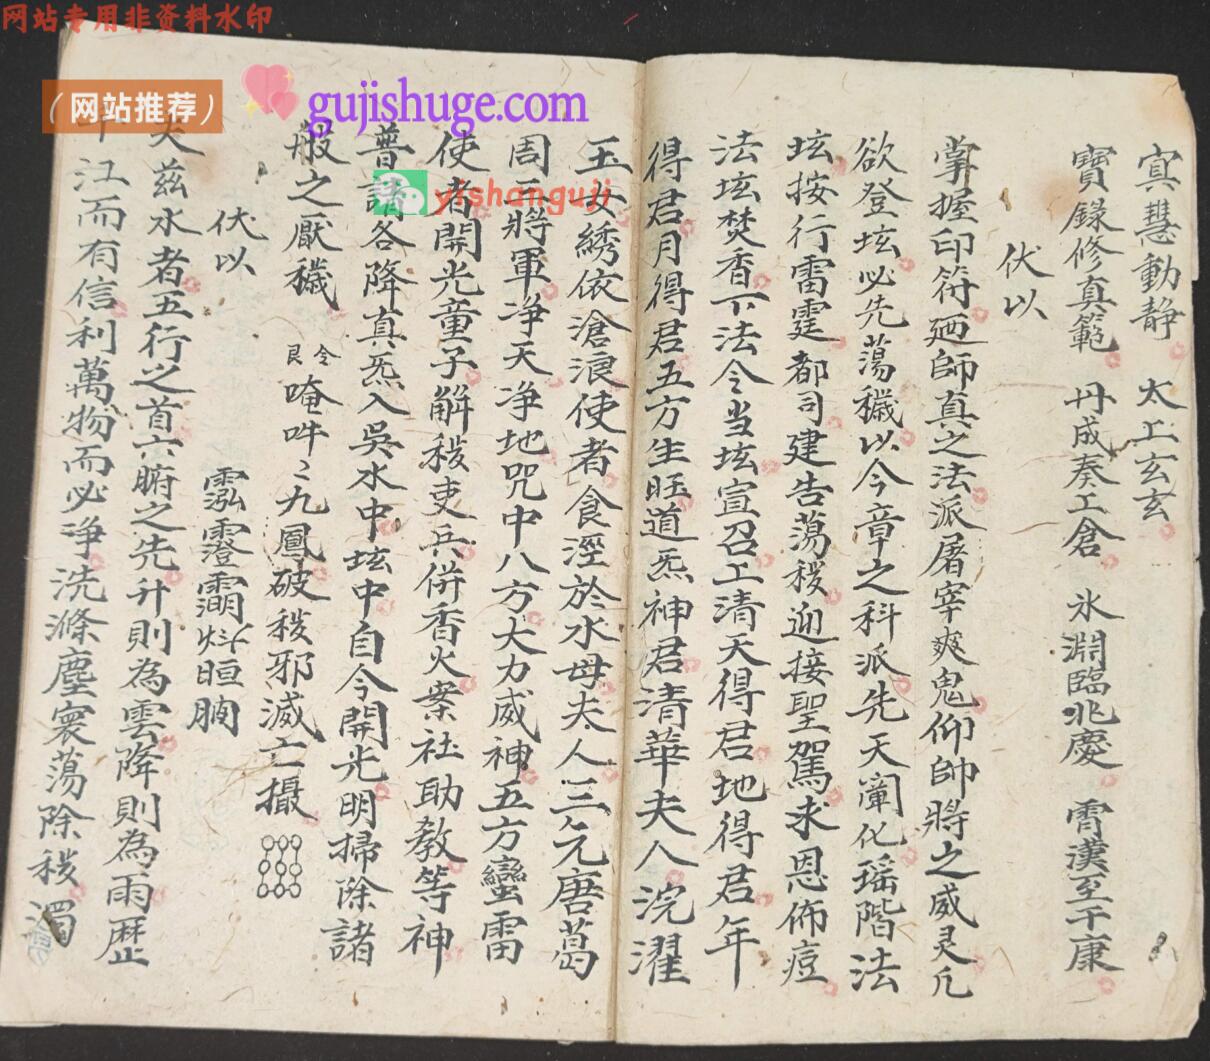 网站专用非资料水印
（网站推荐）
gujishuge.com
yishanguji
寘慧動静 太工玄玄
寶録修真範 丹成奏工倉 氷淵臨兆慶 霄漢至干康
伏以
掌握印符廼師真之法派屠宰爽鬼仰帥將之威灵凢
欲登垓必先蕩穢以今章之科派先天闡化瑶階法
垓按行雷霆都司建告蕩秽迎接聖駕求恩佈
法垓焚香下法令当垓宣召工清天得君地得君年
得君月得君五方生旺道炁神君清華夫人浣濯
玉女綉依滄浪使者食淫於水母夫人三元唐葛
周三將軍净天净地咒中八方大力威神五方蠻雷
使者開光童子解秽吏兵併香火案社助教等神
普請各降真炁入吳水中垓中自今開光明掃除諸
般之厭穢 令艮 唵吽〻九鳳破秽邪滅亡攝
伏以
夫兹水者五行之首六腑之先升則為雲降則為雨歷
江而有信利萬物而必净洗滌塵寰蕩除秽濁